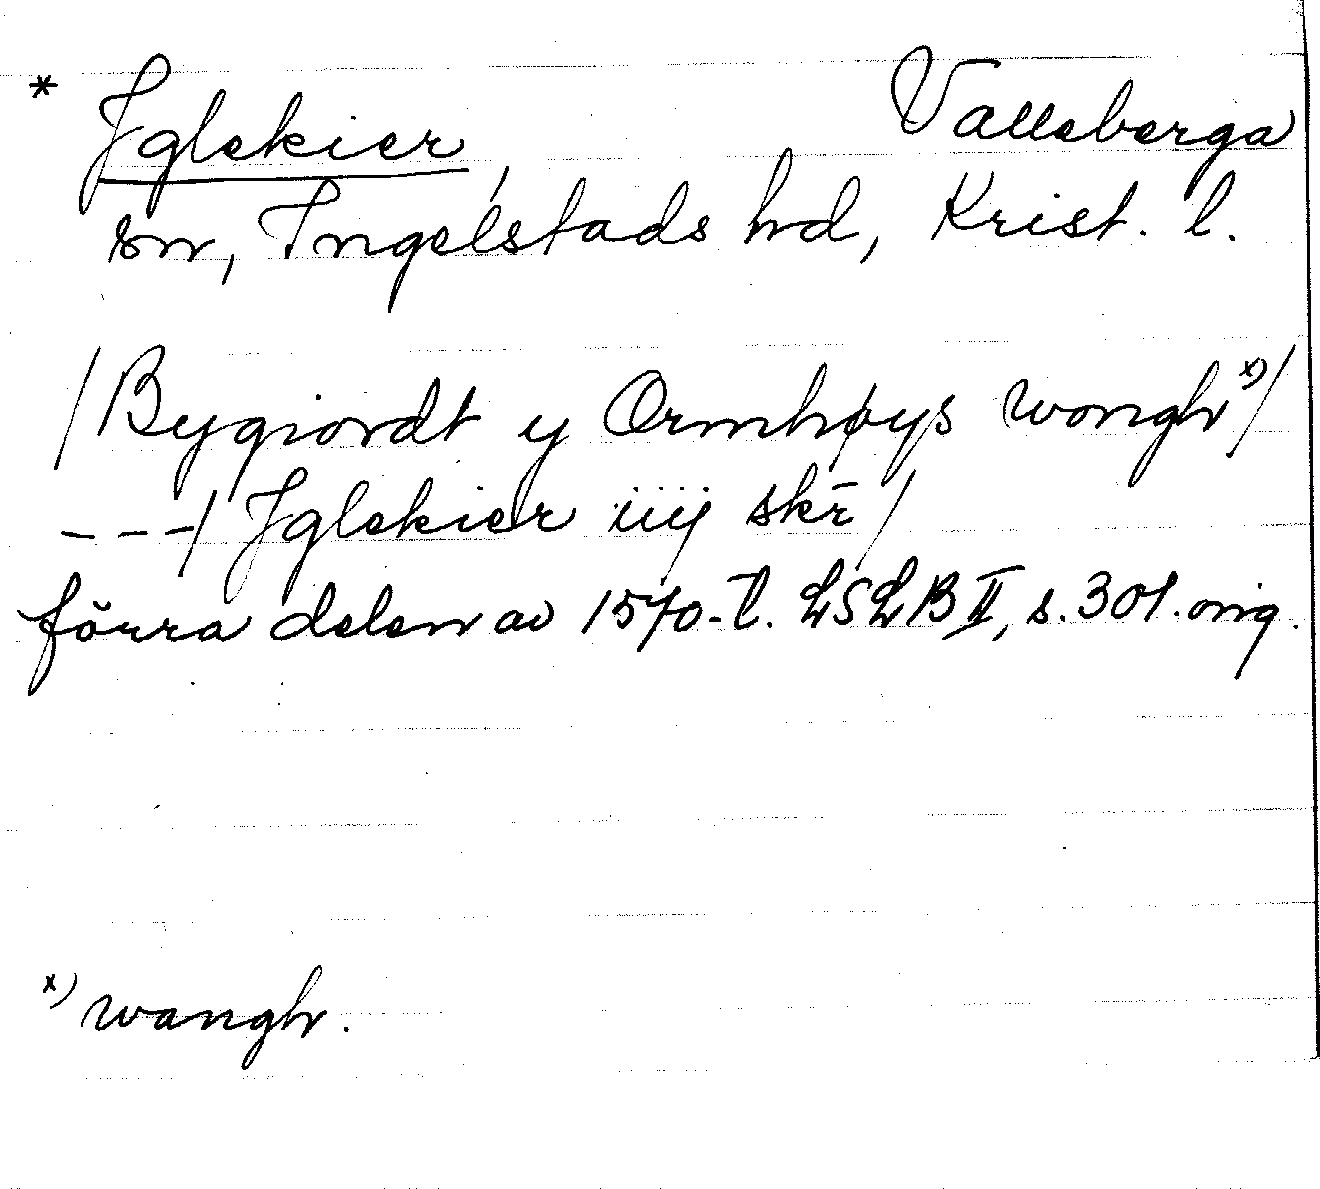 * Jglekier, Valleberga
sn, Ingelstads hd, Krist. l.
/Bygiordt y Ormhøys wongh x)/
---/ Jglekier iiij skr̄ /
förra delen av 1570-t. LSLB II, s. 301. orig.
x) wangh.